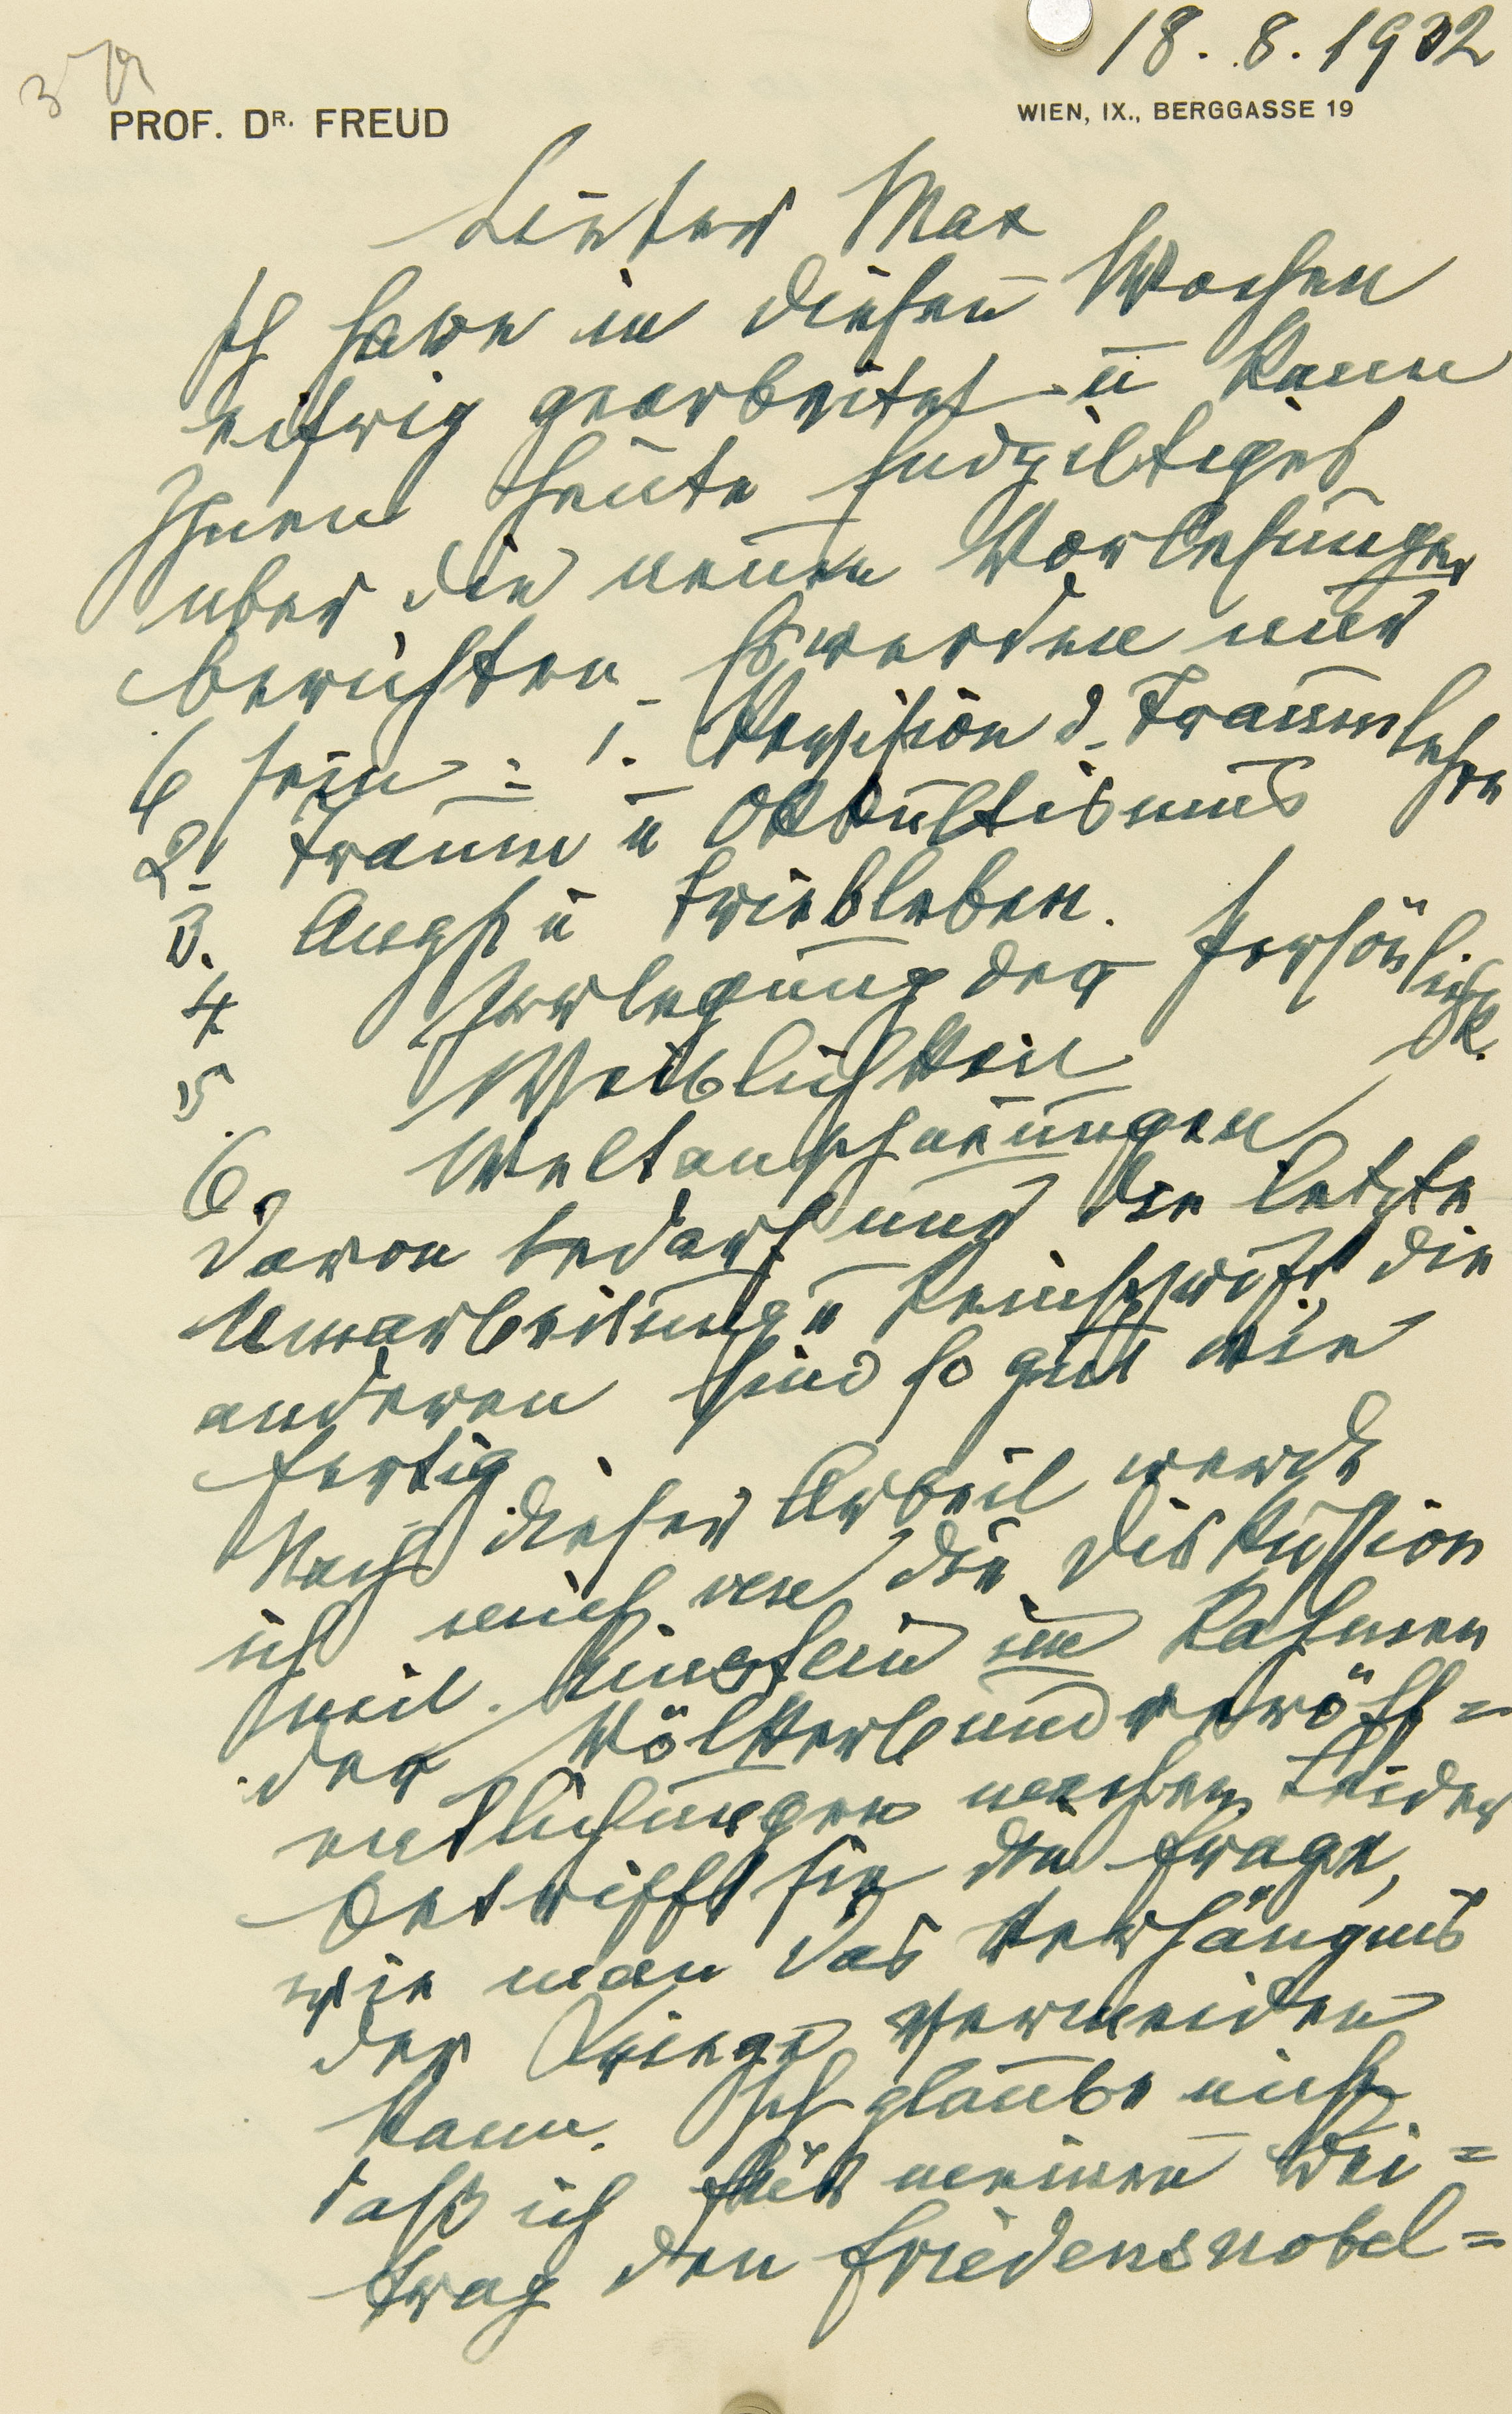 18. 8. 1932
PROF. DR. FREUD
WIEN, IX., BERGGASSE 19
Lieber Max
Ich habe in diesen Wochen
eifrig gearbeitet u kann
Ihnen heute Endgiltiges
über die neuen Vorlesungen
berichten. Es werden nur
6 sein: 1. Revision d. Traumlehre
2. Traum u Okkultismus
3. Angst u Triebleben.
4 Zerlegung der Persönlichk.
5. Weiblichkeit
6. Weltanschauungen
Davon bedarf nur die letzte
Umarbeitung u Reinschrift, die
anderen sind so gut wie
fertig.
Nach dieser Arbeit werde
ich mich an die Diskussion
mit Einstein im Rahmen
der Völkerbundveröff=
entlichungen machen. Leider
betrifft sie die Frage,
wie man das Verhängnis
der Kriege vermeiden
kann. Ich glaube nicht,
daß ich für meinen Bei=
trag den Friedensnobel=